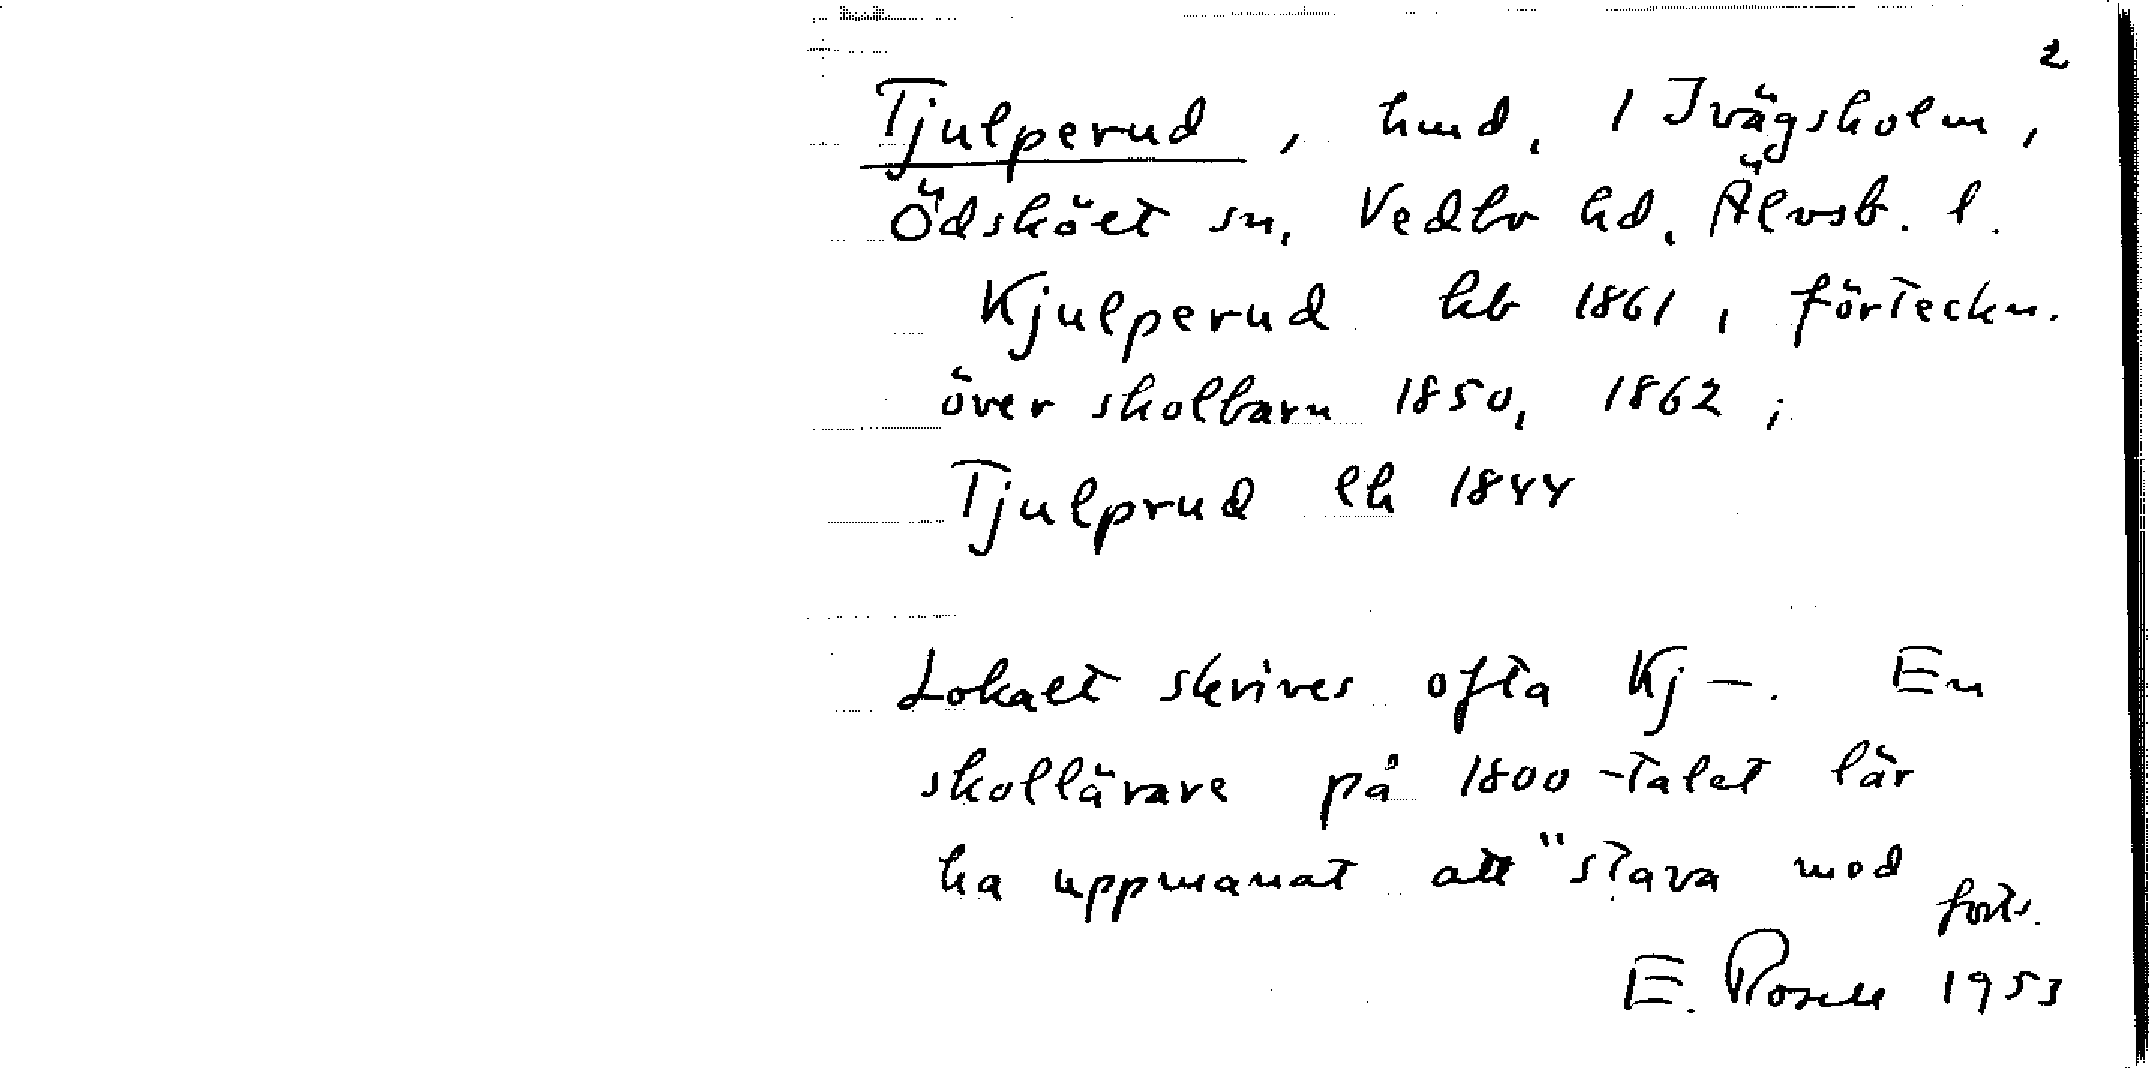 2
Tjulperud, hmd, 1 Ivägsholm,
Ödskölt sn, Vedbo hd, Älvsb. l.
Kjulperud hb 1861, förteckn.
över skolbarn 1850, 1862;
Tjulprud lh 1844
Lokalt skrives ofta Kj—. En
skollärare på 1800-talet lär
ha uppmanat att "stava med
forts.
E. Rosell 1953